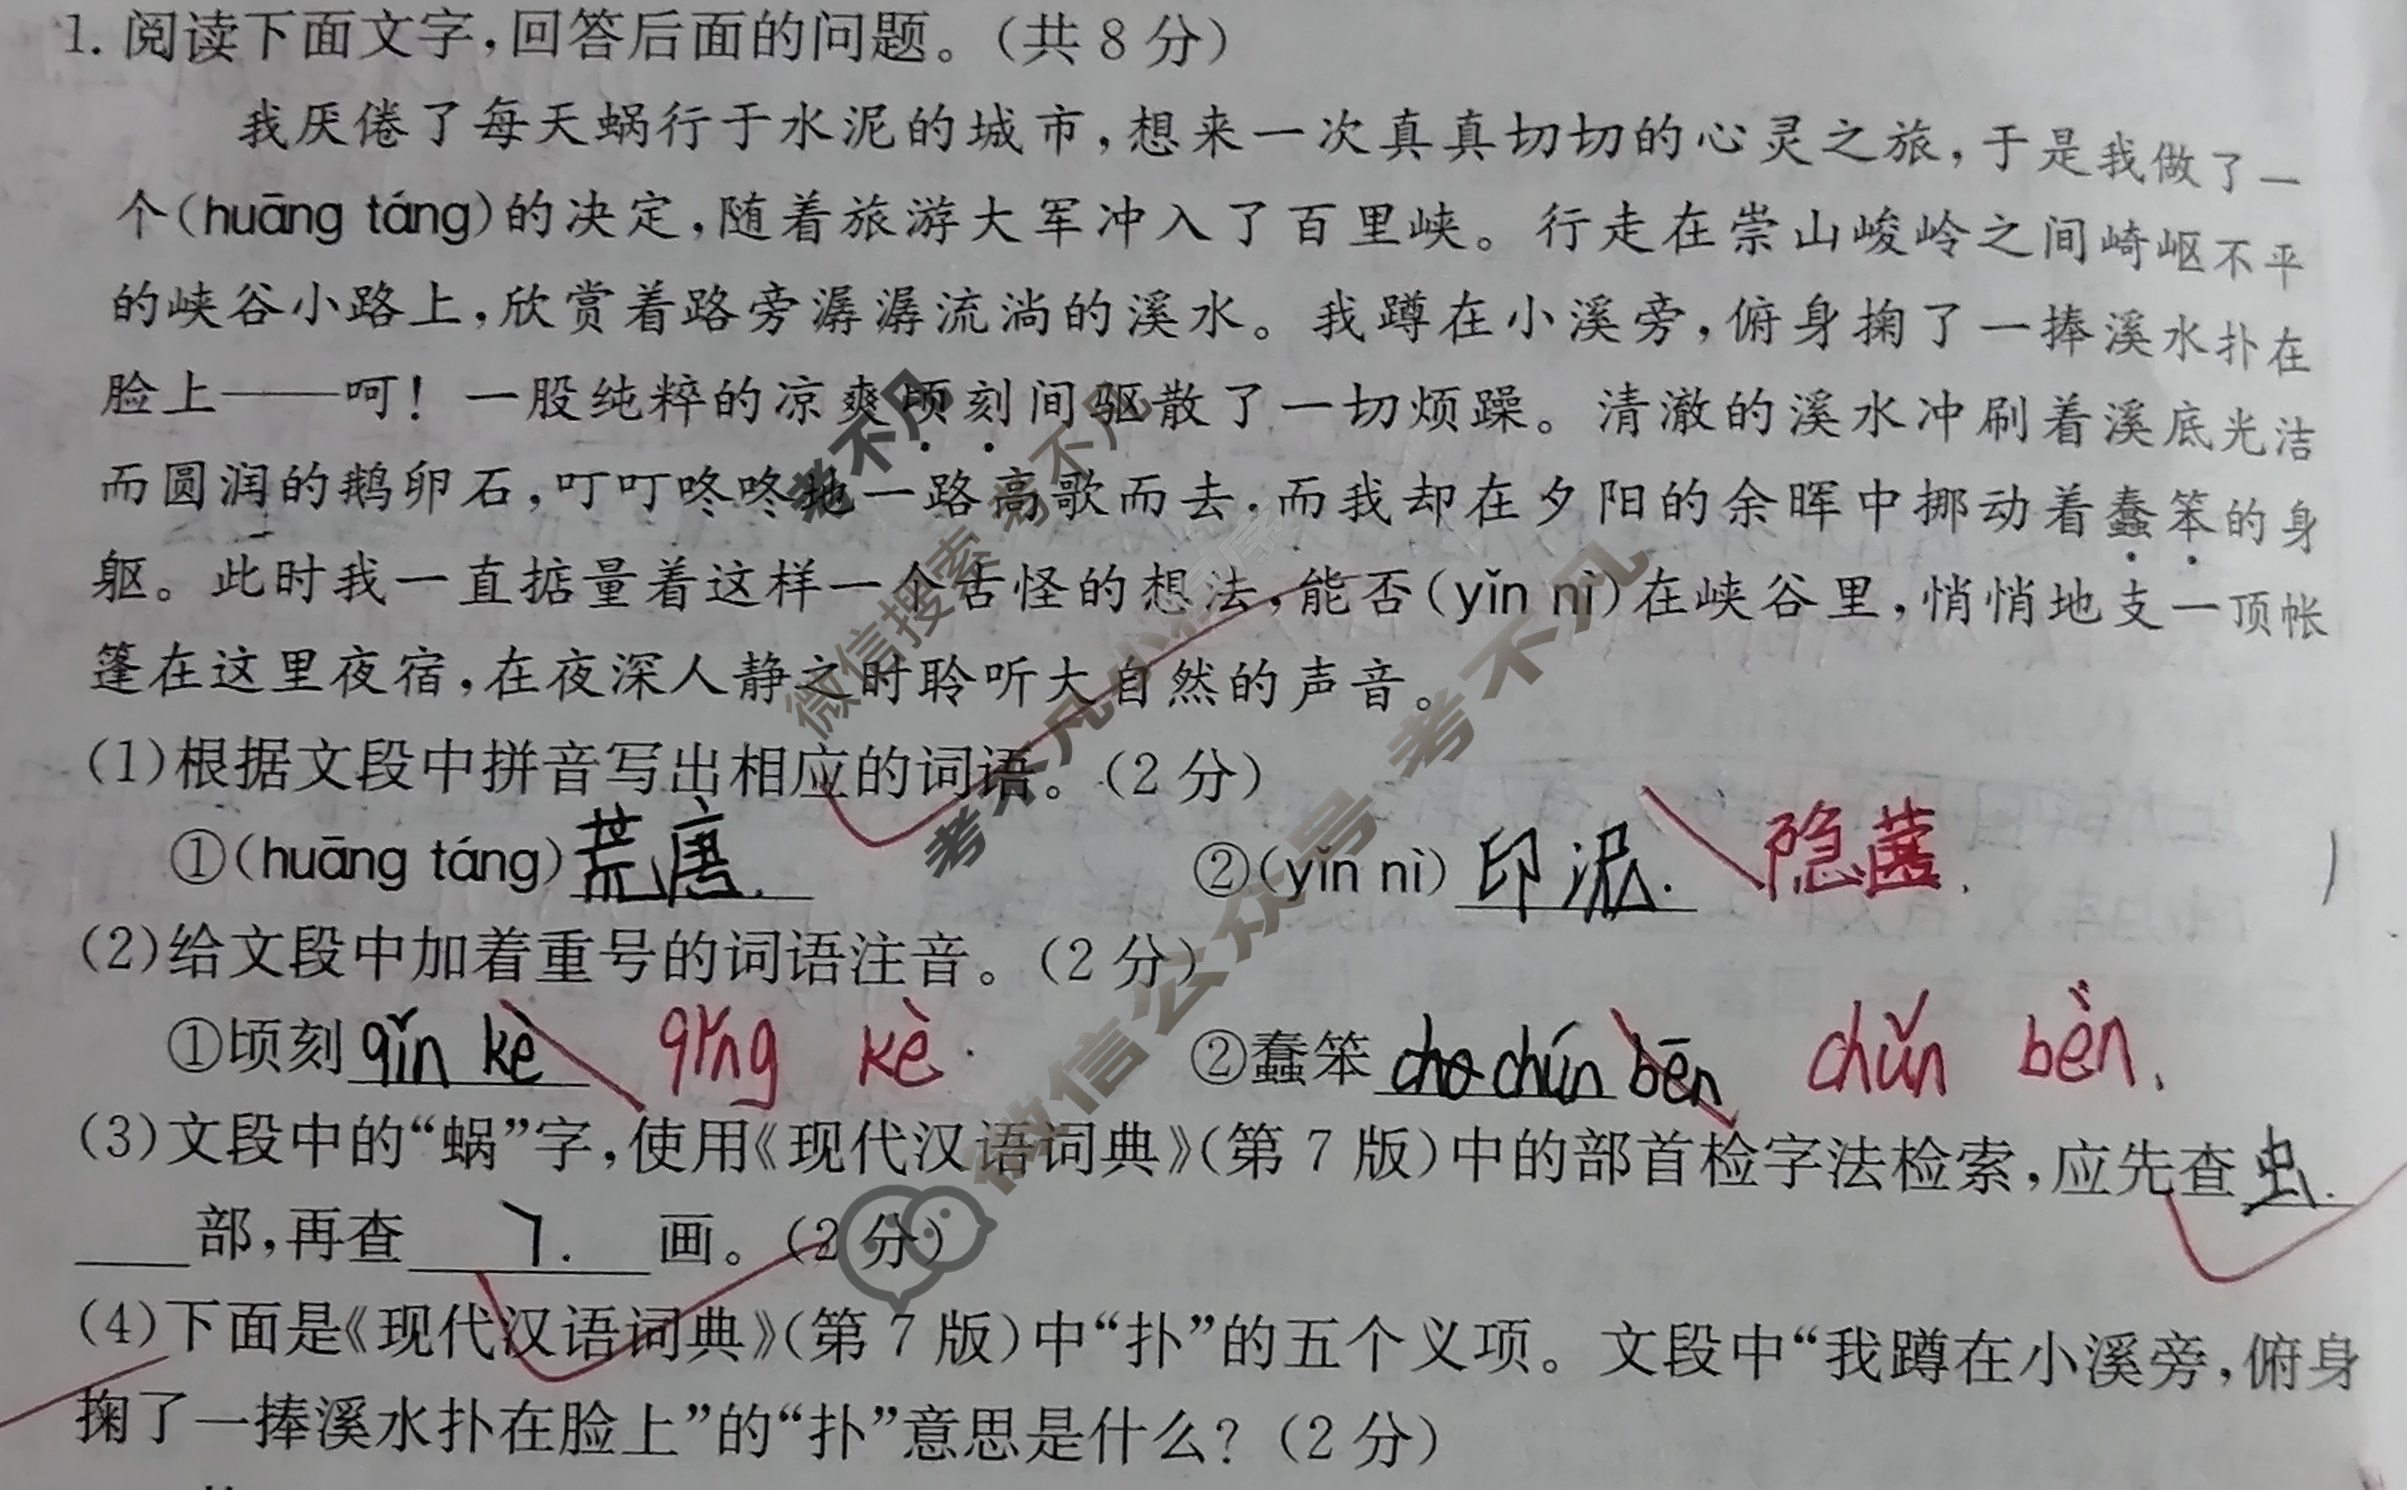 1. 阅读下面文字,回答后面的问题。(共 8 分)
我厌倦了每天蜗行于水泥的城市,想来一次真真切切的心灵之旅,于是我做了一
个(huāng táng)的决定,随着旅游大军冲入了百里峡。行走在崇山峻岭之间崎岖不平
的峡谷小路上,欣赏着路旁潺潺流淌的溪水。我蹲在小溪旁,俯身掬了一捧溪水扑在
脸上——呵!一股纯粹的凉爽顷刻间驱散了一切烦躁。清澈的溪水冲刷着溪底光洁
而圆润的鹅卵石,叮叮咚咚地一路高歌而去,而我却在夕阳的余晖中挪动着蠢笨的身
躯。此时我一直掂量着这样一个古怪的想法,能否(yǐn nì)在峡谷里,悄悄地支一顶帐
篷在这里夜宿,在夜深人静之时聆听大自然的声音。
(1)根据文段中拼音写出相应的词语。(2 分)
①(huāng táng)荒唐. ②(yǐn nì)印泥. 隐
(2)给文段中加着重号的词语注音。(2 分)
①顷刻 qǐn kè qǐng kè. ②蠢笨 cho chún bēn chǔn bèn.
(3)文段中的“蜗”字,使用《现代汉语词典》(第 7 版)中的部首检字法检索,应先查 虫.
部,再查 7. 画。(2 分)
(4)下面是《现代汉语词典》(第 7 版)中“扑”的五个义项。文段中“我蹲在小溪旁,俯身
掬了一捧溪水扑在脸上”的“扑”意思是什么?(2 分)
考不凡
微信搜索 考不凡
考不凡小程序
微信公众号 考不凡